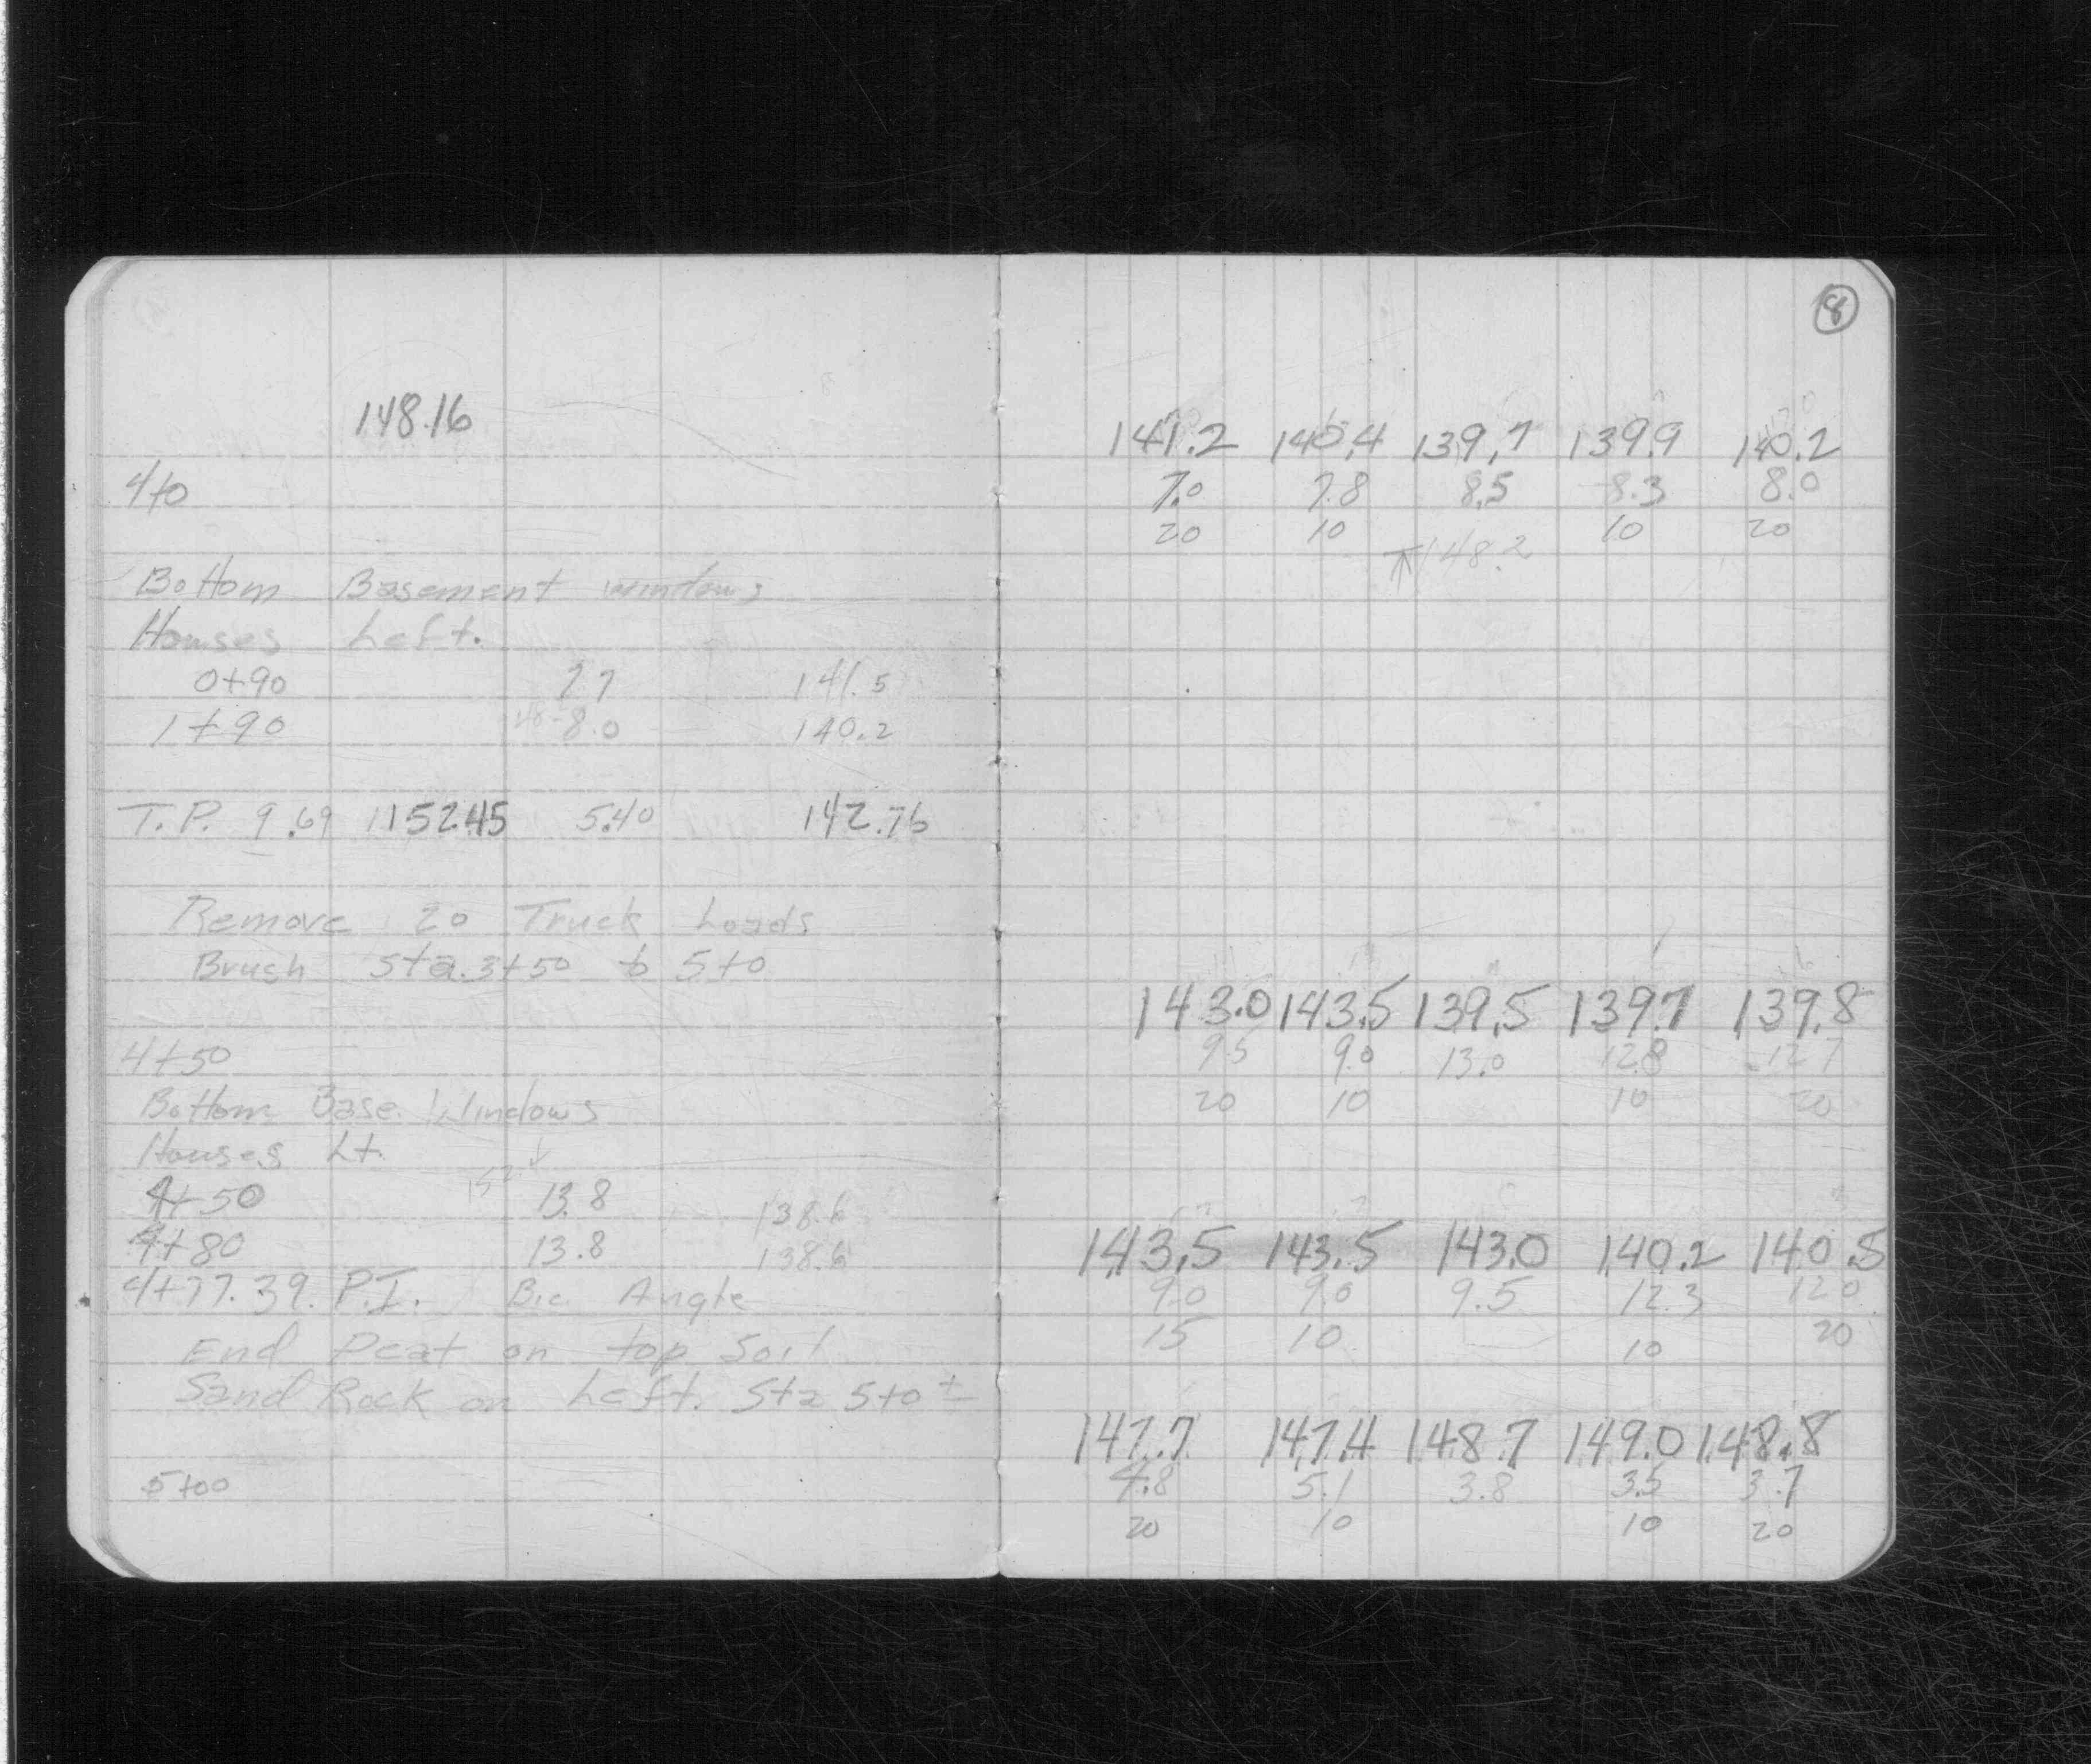 148.16
4+0
Bottom Basement windows
Houses Left.
0+90 7 7 141.5
1+90 8.0 140.2
T.P. 9.69 152.45 5.40 142.76
Remove 20 Truck Loads
Brush Sta. 3+50 to 5+0
4+50
Bottom Base. Windows
Houses Lt.
4+50 13.8 138.6
4+80 13.8 138.6
4+77.39. P.I. Angle
End Peat on top Soil
Sand Rock on Left. Sta 5+0 ±
5+00
8
141.2 140.4 139.7 139.9 140.2
7.0 7.8 8.5 8.3 8.0
20 10 10 20
⊼ 148.2
143.0 143.5 139.5 139.7 139.8
9.5 9.0 13.0 12.8 12.7
20 10 10 20
143.5 143.5 143.0 140.2 140.5
9.0 9.0 9.5 12.3 12.0
15 10 10 20
147.7 147.4 148.7 149.0 148.8
4.8 5.1 3.8 3.5 3.7
20 10 10 20